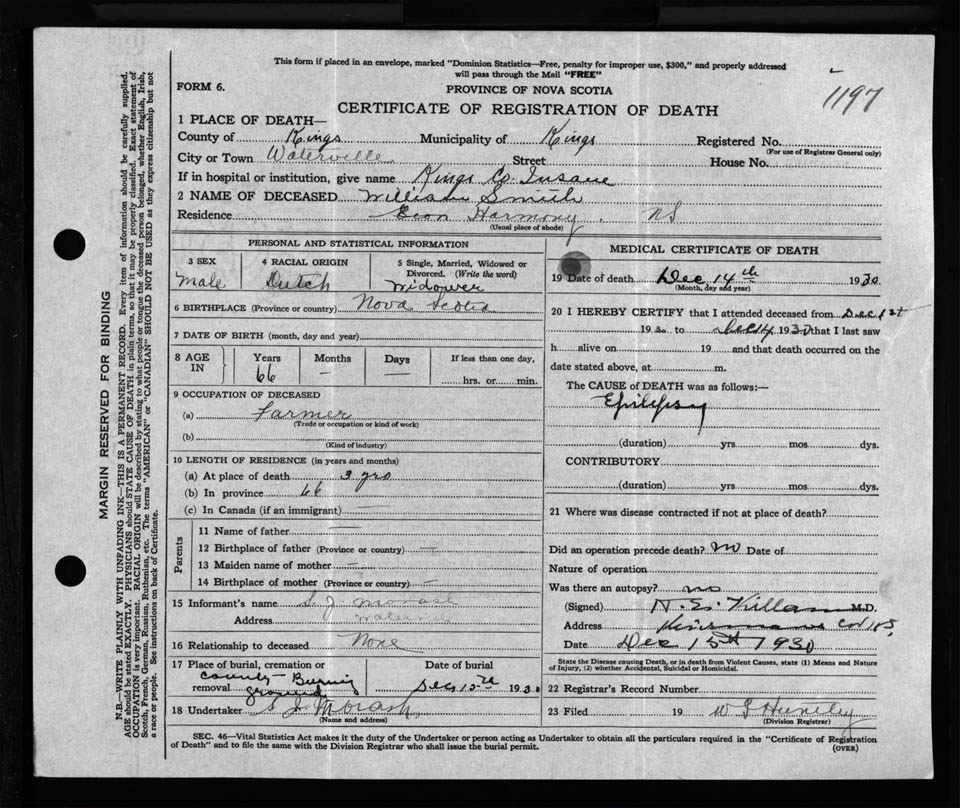 This form if placed in an envelope, marked "Dominion Statistics—Free, penalty for improper use, $300," and properly addressed
will pass through the Mail "FREE"
1197
FORM 6.
PROVINCE OF NOVA SCOTIA
CERTIFICATE OF REGISTRATION OF DEATH
1 PLACE OF DEATH—
County of Kings Municipality of Kings Registered No.
(For use of Registrar General only)
City or Town Waterville Street House No.
If in hospital or institution, give name Kings Co. Insane
2 NAME OF DECEASED William Smith
Residence Harmony. NS
(Usual place of abode)
PERSONAL AND STATISTICAL INFORMATION
3 SEX
Male
4 RACIAL ORIGIN
Dutch
5 Single, Married, Widowed or
Divorced. (Write the word)
Widower
6 BIRTHPLACE (Province or country) Nova Scotia
7 DATE OF BIRTH (month, day and year)
8 AGE IN
Years
66
Months
—
Days
—
If less than one day,
hrs. or min.
9 OCCUPATION OF DECEASED
(a) Farmer
(Trade or occupation or kind of work)
(b)
(Kind of industry)
10 LENGTH OF RESIDENCE (in years and months)
(a) At place of death 3 yrs
(b) In province 66
(c) In Canada (if an immigrant) —
Parents
11 Name of father —
12 Birthplace of father (Province or country) —
13 Maiden name of mother —
14 Birthplace of mother (Province or country) —
15 Informant's name S. J. Morash
Address Waterville
16 Relationship to deceased None
17 Place of burial, cremation or
removal County Burying
ground
Date of burial
Dec 15th 1930
18 Undertaker S J Morash
(Name and address)
MEDICAL CERTIFICATE OF DEATH
19 Date of death Dec 14th 1930
(Month, day and year)
20 I HEREBY CERTIFY that I attended deceased from Dec 1st
1930 to Dec 14 1930 that I last saw
h alive on 19 and that death occurred on the
date stated above, at m.
The CAUSE of DEATH was as follows:—
Epilepsy
(duration) yrs mos dys.
CONTRIBUTORY
(duration) yrs mos dys.
21 Where was disease contracted if not at place of death?
Did an operation precede death? no Date of
Nature of operation
Was there an autopsy? no
(Signed) M.D.
Address
Date Dec 15th 1930
State the Disease causing Death, or in death from Violent Causes, state (1) Means and Nature
of Injury, (2) whether Accidental, Suicidal or Homicidal.
22 Registrar's Record Number
23 Filed 19 Huntley
(Division Registrar)
SEC. 46—Vital Statistics Act makes it the duty of the Undertaker or person acting as Undertaker to obtain all the particulars required in the "Certificate of Registration
of Death" and to file the same with the Division Registrar who shall issue the burial permit.
(OVER)
MARGIN RESERVED FOR BINDING
N.B.—WRITE PLAINLY WITH UNFADING INK—THIS IS A PERMANENT RECORD. Every item of information should be carefully supplied.
AGE should be stated EXACTLY. PHYSICIANS should STATE CAUSE OF DEATH in plain terms, so that it may be properly classified. Exact statement of
OCCUPATION is very important. RACIAL ORIGIN will be described by stating to what people or tongue the deceased person belonged, whether English, Irish,
Scotch, French, German, Russian, Ruthenian, etc. The terms "AMERICAN" or "CANADIAN" SHOULD NOT BE USED as they express citizenship but not
a race or people. See instructions on back of Certificate.